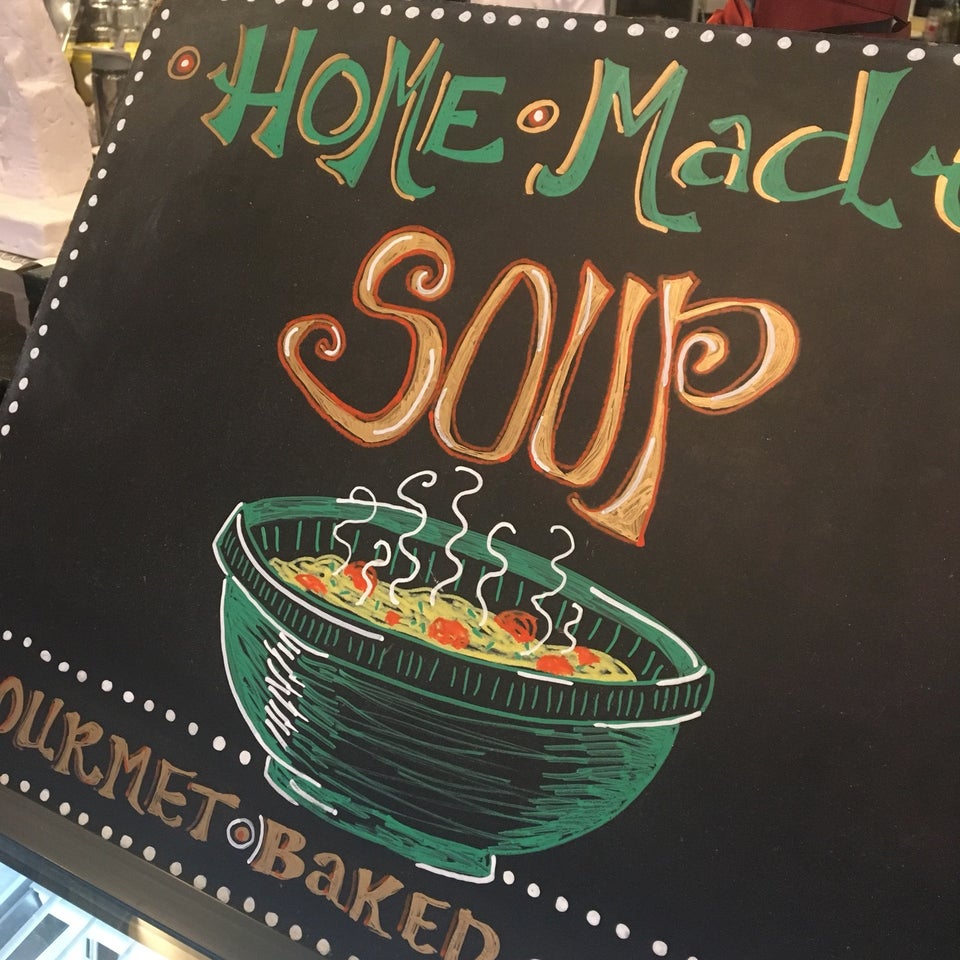 HOME • Made
SOUP
OURMET • BaKED